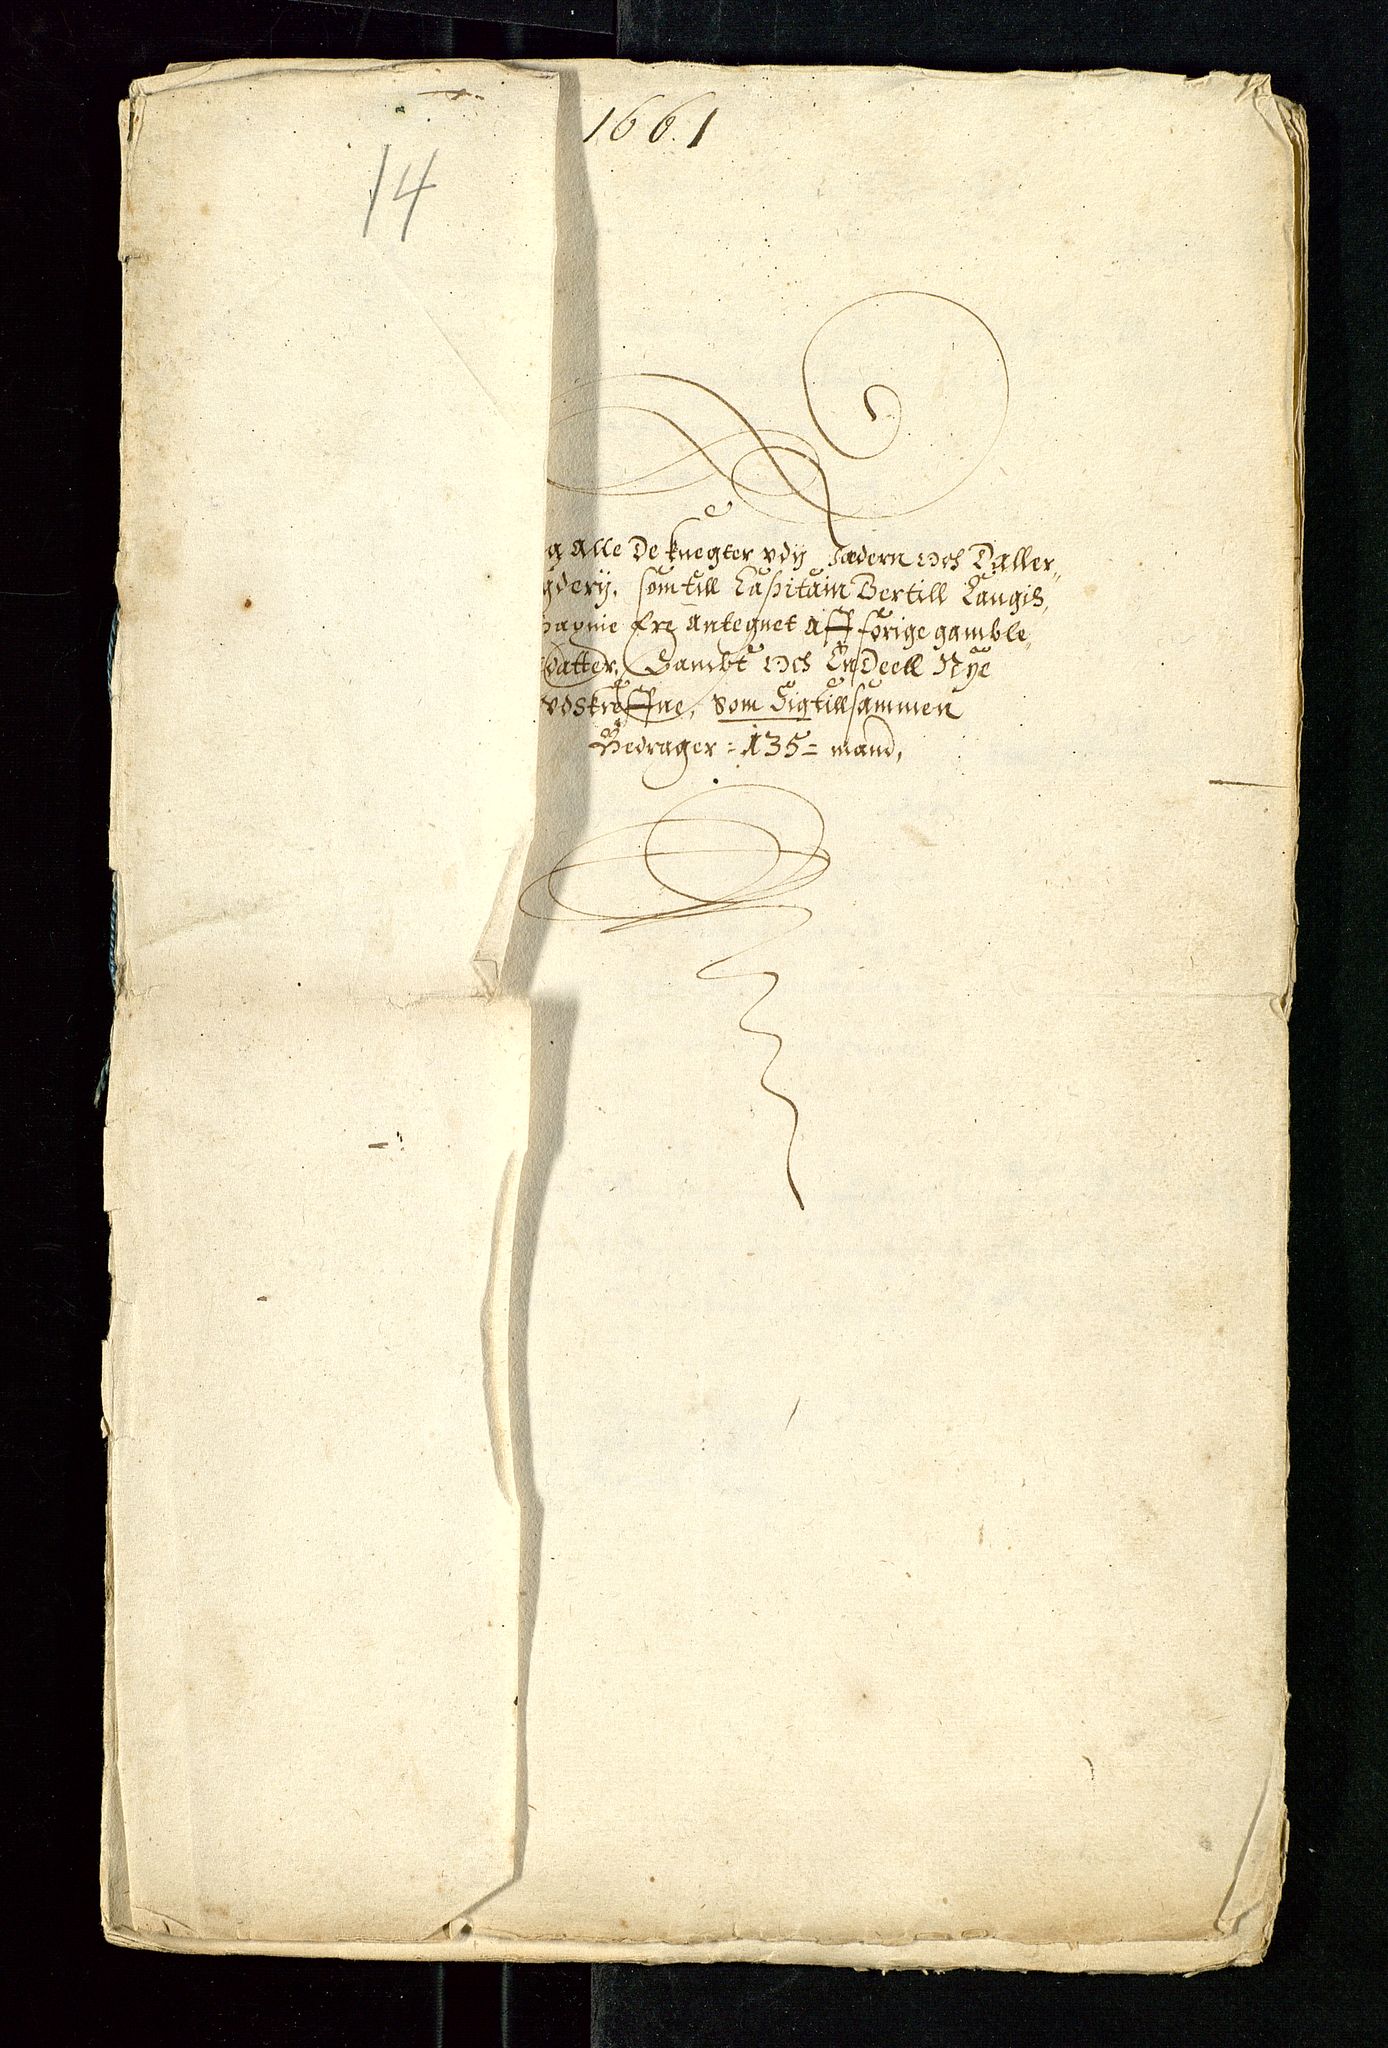 1661
14
g Alle De knegter vdy Jædern och Daller„
gderij, som till Capitain Bertill Laugis
pagnie Ere Antegnet Aff förige gamble
datter, Sambt och En Deell Nÿe
vdskreffne, som Sigtillsammen
Bedrager = 135 = mand,